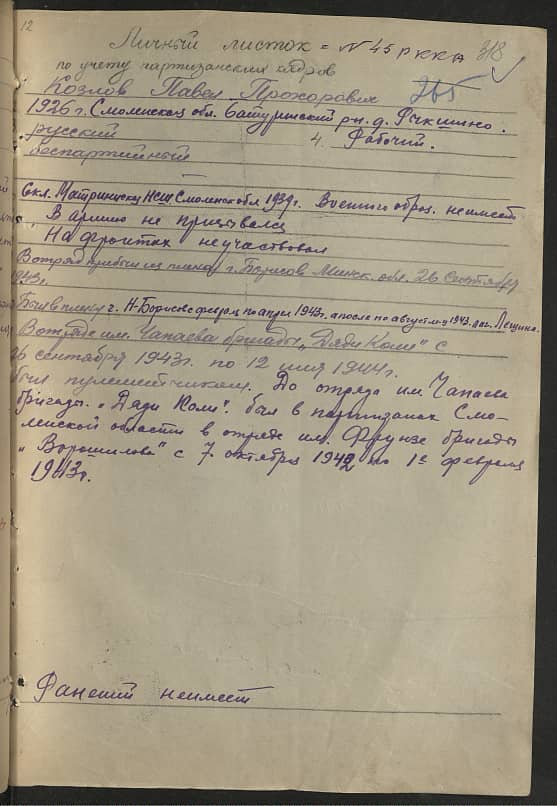 12
Личный листок = N 45 РККА 318
по учету партизанских кадров
265
Козлов Павел Прохорович
1926 г. Смоленской обл. Батуринский рн. д.
русский 4. Рабочий.
беспартийный
Окл. НСШ Смоленск обл 1939 г. Военного образ. неимеет
В армию не призывался
На фронтах неучаствовал
В отряд прибыл из плена г. Борисов Минск. обл. 26 Сентября
1943 г.
Был в плену г. Н-Борисове с февраля по апрель 1943 г. а после по август м-ц 1943.
В отряде им. Чапаева бригады „Дяди Коли" с
26 сентября 1943 г. по 12 июля 1944 г.
был пулеметчиком. До отряда им Чапаева
бригады. „Дяди Коли". был в партизанах Смо-
ленской области в отряде им. Фрунзе бригады
„Ворошилова" с 7 октября 1942 по 1е февраля
1943 г.
Ранений неимеет